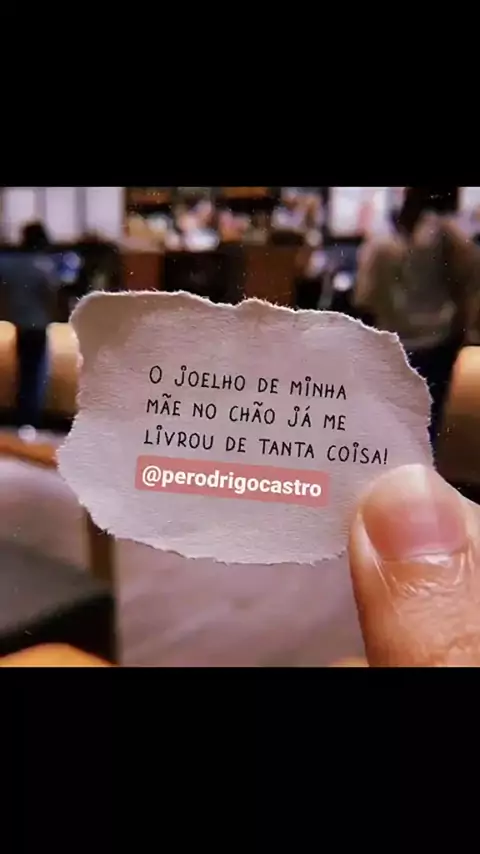 O JOELHO DE MINHA
MÃE NO CHÃO JÁ ME
LIVROU DE TANTA COISA!
@perodrigocastro